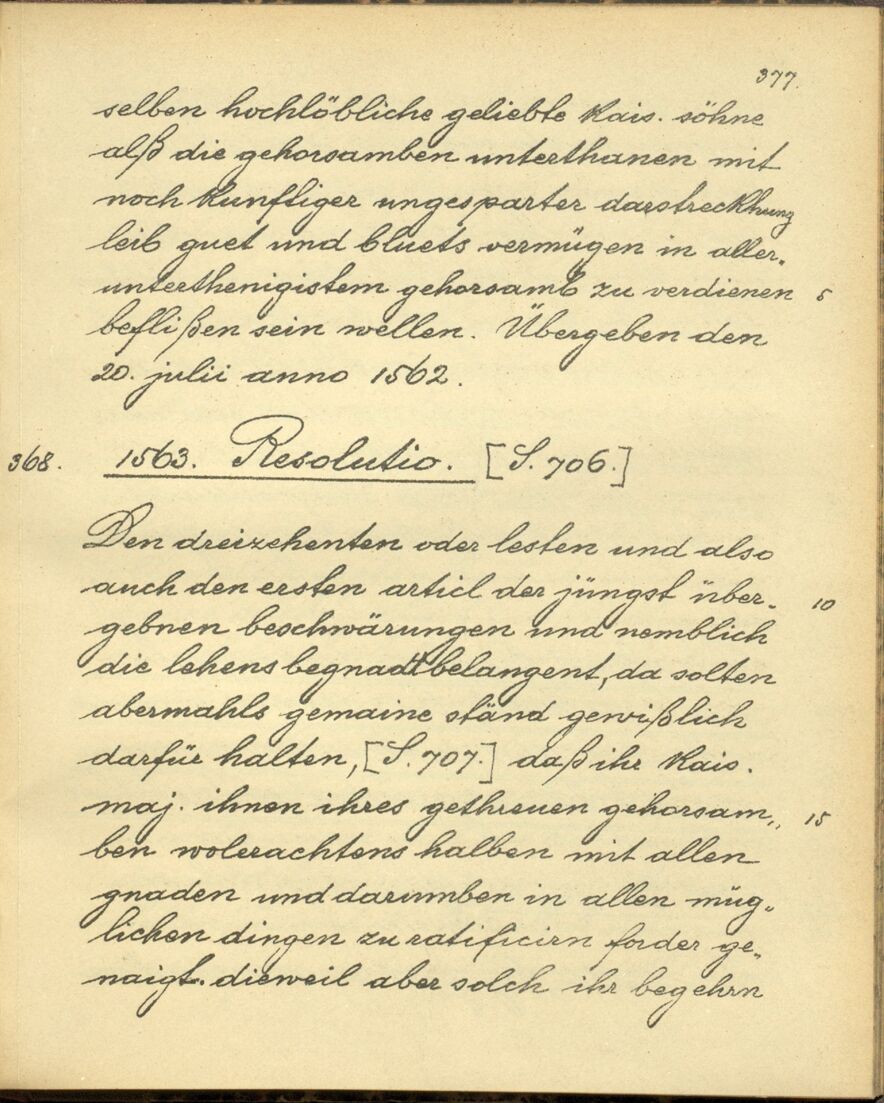 377.
selben hochlöbliche geliebte Kais. söhne
alß die gehorsamben unterthanen mit
noch kunftiger ungesparter darstreckhung
leib guet und bluets vermügen in aller„
unterthenigistem gehorsamb zu verdienen 5
beflißen sein wellen. Übergeben den
20. julii anno 1562.
368. 1563. Resolutio. [S. 706.]
Den dreizehenten oder lesten und also
auch den ersten articl der jüngst über„ 10
gebnen beschwärungen und nemblich
die lehensbegnadt belangent, da solten
abermahls gemaine ständ gewißlich
darfür halten, [S. 707.] daß ihr Kais.
maj. ihnen ihres gethreuen gehorsam„ 15
ben wolerachtens halben mit allen
gnaden und darumben in allen müg„
lichen dingen zu ratificirn forder ge„
naigt. dieweil aber solch ihr begehrn